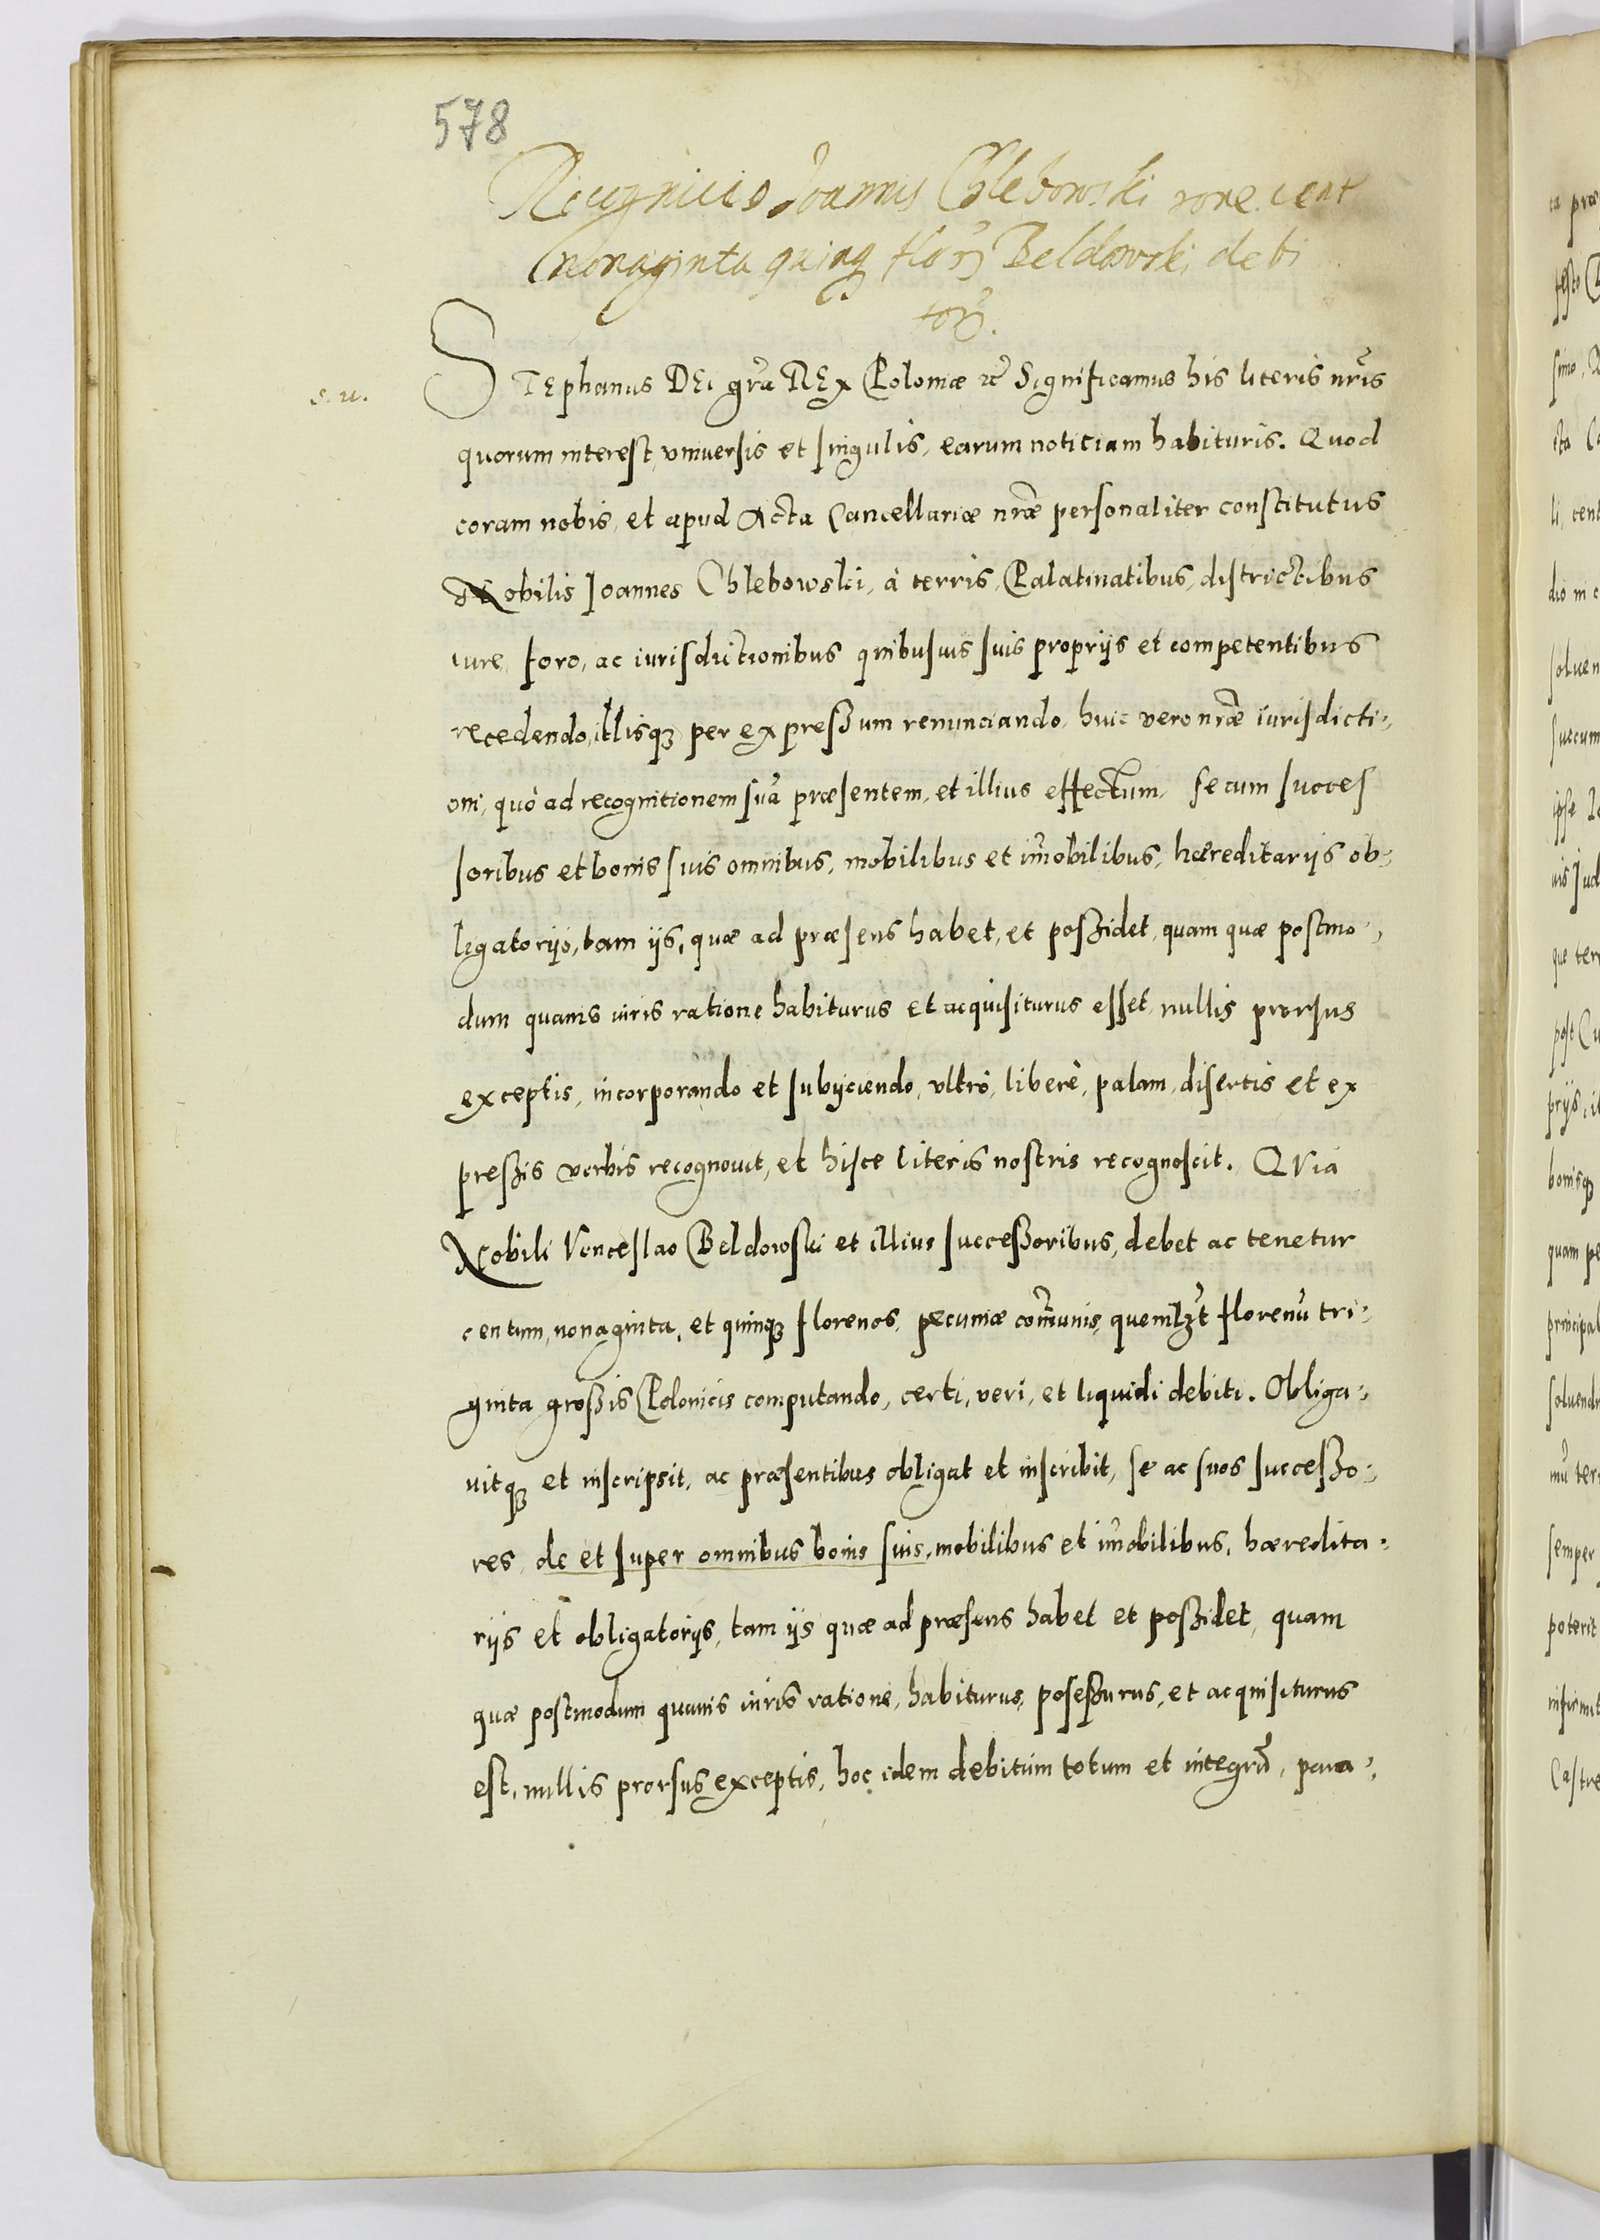 578
Recognitio Joannis Chlebowski rone cent
nonaginta quinq flor Beldowski debi
tor.
s. u.
STEphanus DEi gra REx Poloniæ etc Significamus his literis nris
quorum interest, vniuersis et singulis, earum noticiam habituris. Quod
coram nobis, et apud Acta Cancellariæ nræ personaliter constitutus
Nobilis Joannes Chlebowski, à terris, Palatinatibus, districtibus
iure, foro, ac iurisdictionibus quibusuis suis proprijs et competentibus
recedendo, illisq3 per expreßum renunciando, huic vero nræ iurisdicti-
oni, quò ad recognitionem suã præsentem, et illius effectum, se cum succes
soribus et bonis suis omnibus, mobilibus et im̃obilibus, hæreditarijs ob-
legatorijs, tam ijs, quæ ad præsens habet, et poßidet, quam quæ postmo-
dum quauis iuris ratione habiturus et acquisiturus esset, nullis prorsus
exceptis, incorporando et subijciendo, vltrò, liberè, palam, disertis et ex
preßis verbis recognouit, et hisce literis nostris recognoscit. QVia
Nobili Venceslao Beldowski et illius succeßoribus, debet ac tenetur
centum, nonaginta, et quinq3 florenos, pecuniæ com̃unis, quemlzt florenũ tri-
ginta großis Polonicis computando, certi, veri, et liquidi debiti. Obliga-
uitq3 et inscripsit, ac præsentibus obligat et inscribit, se ac suos succeßo-
res, de et super omnibus bonis suis, mobilibus et im̃obilibus, hæredita-
rijs et obligatorijs, tam ijs quæ ad præsens habet et poßidet, quam
quæ postmodum quauis iuris ratione, habiturus, poseßurus, et acquisiturus
est, nullis prorsus exceptis, hoc idem debitum totum et integrũ, para-